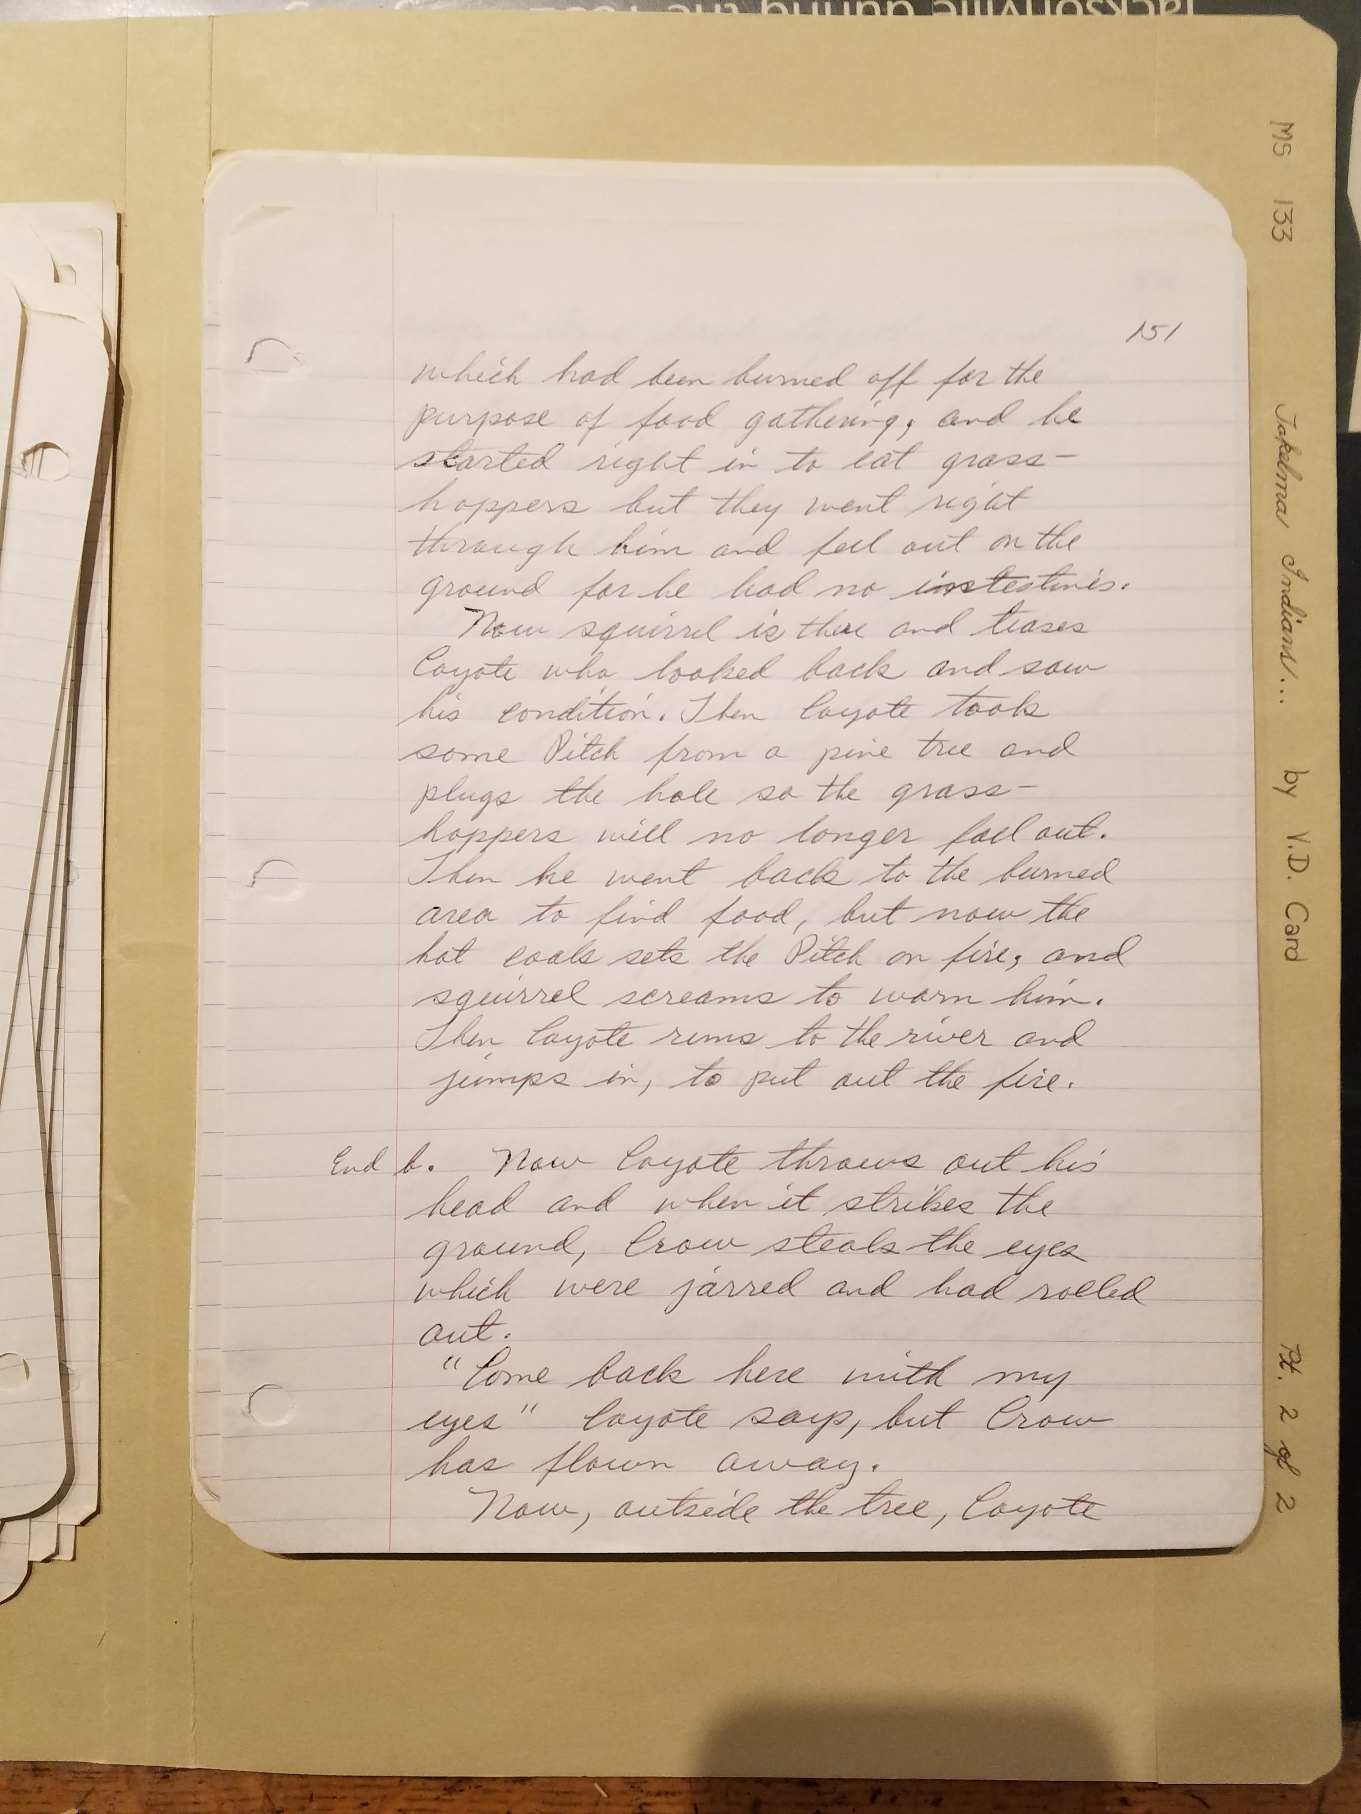 Jacksonville during the
MS 133 Takelma Indians... by V.D. Card Pt. 2 of 2
151
which had been burned off for the
purpose of food gathering, and he
started right in to eat grass-
hoppers but they went right
through him and fell out on the
ground for he had no intestines.
Now squirrel is there and teases
Coyote who looked back and saw
his condition. Then Coyote took
some Pitch from a pine tree and
plugs the hole so the grass-
hoppers will no longer fall out.
Then he went back to the burned
area to find food, but now the
hot coals sets the Pitch on fire, and
squirrel screams to warn him.
Then Coyote runs to the river and
jumps in, to put out the fire.
End b. Now Coyote throws out his
head and when it strikes the
ground, Crow steals the eyes
which were jarred and had rolled
out.
"Come back here with my
eyes" Coyote says, but Crow
has flown away.
Now, outside the tree, Coyote